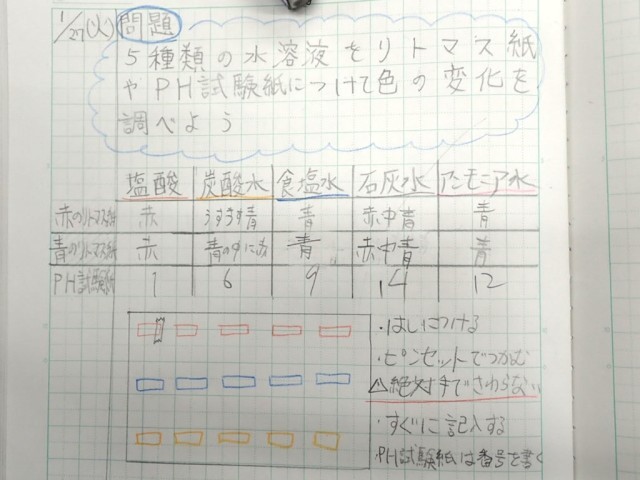 1/27(火) 問題
5種類の水溶液をリトマス紙
やPH試験紙につけて色の変化を
調べよう
塩酸 炭酸水 食塩水 石灰水 アンモニア水
赤のリトマス紙 赤 うすうす青 青 赤中青 青
青のリトマス紙 赤 青の中に赤 青 赤中青 青
PH試験紙 1 6 9 14 12
・はしにつける
・ピンセットでつかむ
⚠絶対手でさわらない
・すぐに記入する
・PH試験紙は番号を書く